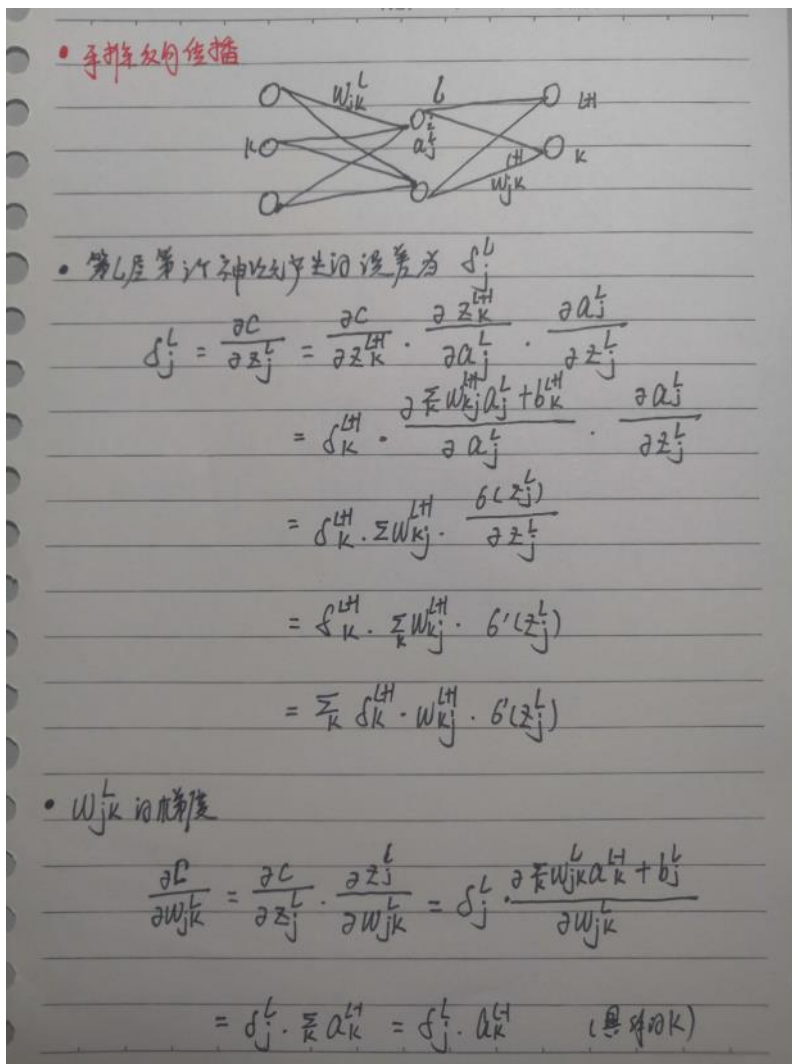 • 手推反向传播
w_{jk}^{L} l L+1
k j a_j^L k
w_{jk}^{L+1}
• 第L层第j个神经元产生的误差为 δ_j^L
δ_j^L = ∂C/∂z_j^L = ∂C/∂z_k^{L+1} · ∂z_k^{L+1}/∂a_j^L · ∂a_j^L/∂z_j^L
= δ_k^{L+1} · ∂Σ_k w_{kj}^{L+1} a_j^L + b_k^{L+1}/∂a_j^L · ∂a_j^L/∂z_j^L
= δ_k^{L+1} · Σ w_{kj}^{L+1} · σ(z_j^L)/∂z_j^L
= δ_k^{L+1} · Σ_k w_{kj}^{L+1} · σ'(z_j^L)
= Σ_k δ_k^{L+1} · w_{kj}^{L+1} · σ'(z_j^L)
• w_{jk}^L 的梯度
∂C/∂w_{jk}^L = ∂C/∂z_j^L · ∂z_j^L/∂w_{jk}^L = δ_j^L · ∂Σ_k w_{jk}^L a_k^{L-1} + b_j^L/∂w_{jk}^L
= δ_j^L · Σ_k a_k^{L-1} = δ_j^L · a_k^{L-1} (具体的k)